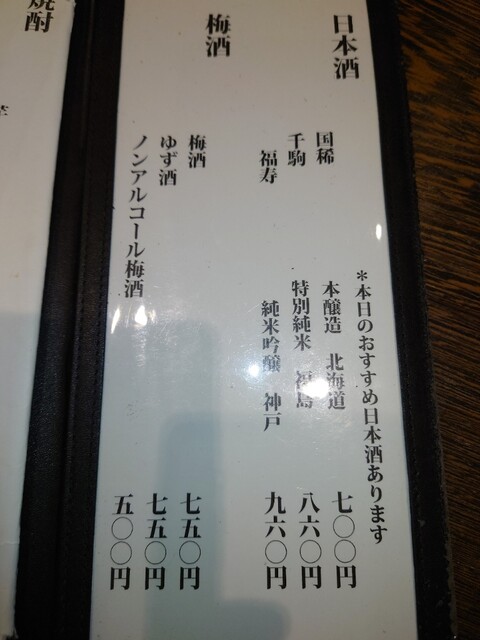 日本酒
＊本日のおすすめ日本酒あります
国稀 本醸造 北海道 七〇〇円
千駒 特別純米 福島 八六〇円
福寿 純米吟醸 神戸 九六〇円
梅酒
梅酒 七五〇円
ゆず酒 七五〇円
ノンアルコール梅酒 五〇〇円
焼酎